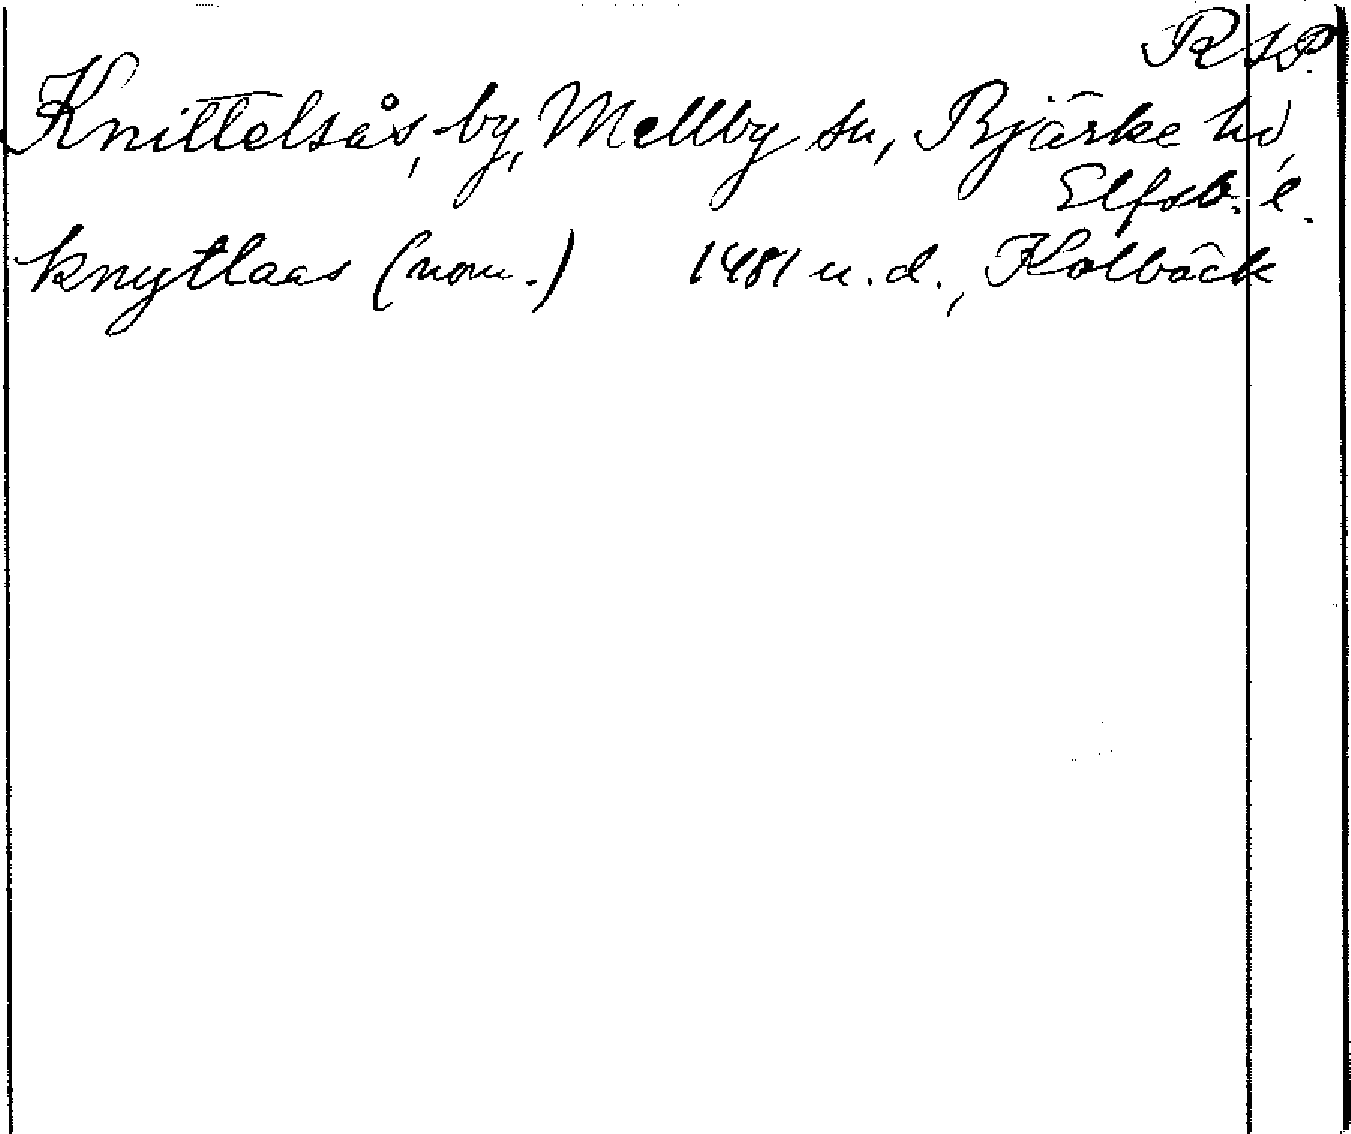 RAP.
Knittelsås, by, Mellby sn, Bjärke hd,
Elfsb. l.
knytlaas (nom.) 1481 u. d., Kolbäck